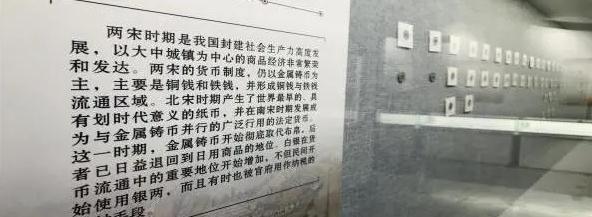 两宋时期是我国封建社会生产力高度发
展，以大中城镇为中心的商品经济非常繁荣
和发达。两宋的货币制度，仍以金属铸币为
主，主要是铜钱和铁钱，并形成铜钱与铁钱
流通区域。北宋时期产生了世界最早的、具
有划时代意义的纸币，并在南宋时期发展成
为与金属铸币并行的广泛行用的法定货币。
这一时期，金属铸币开始彻底取代布帛，后
者已日益退回到日用商品的地位。白银在货
币流通中的重要地位开始增加，不但民间开
始使用银两，而且有时也被官府用作纳税的
手段